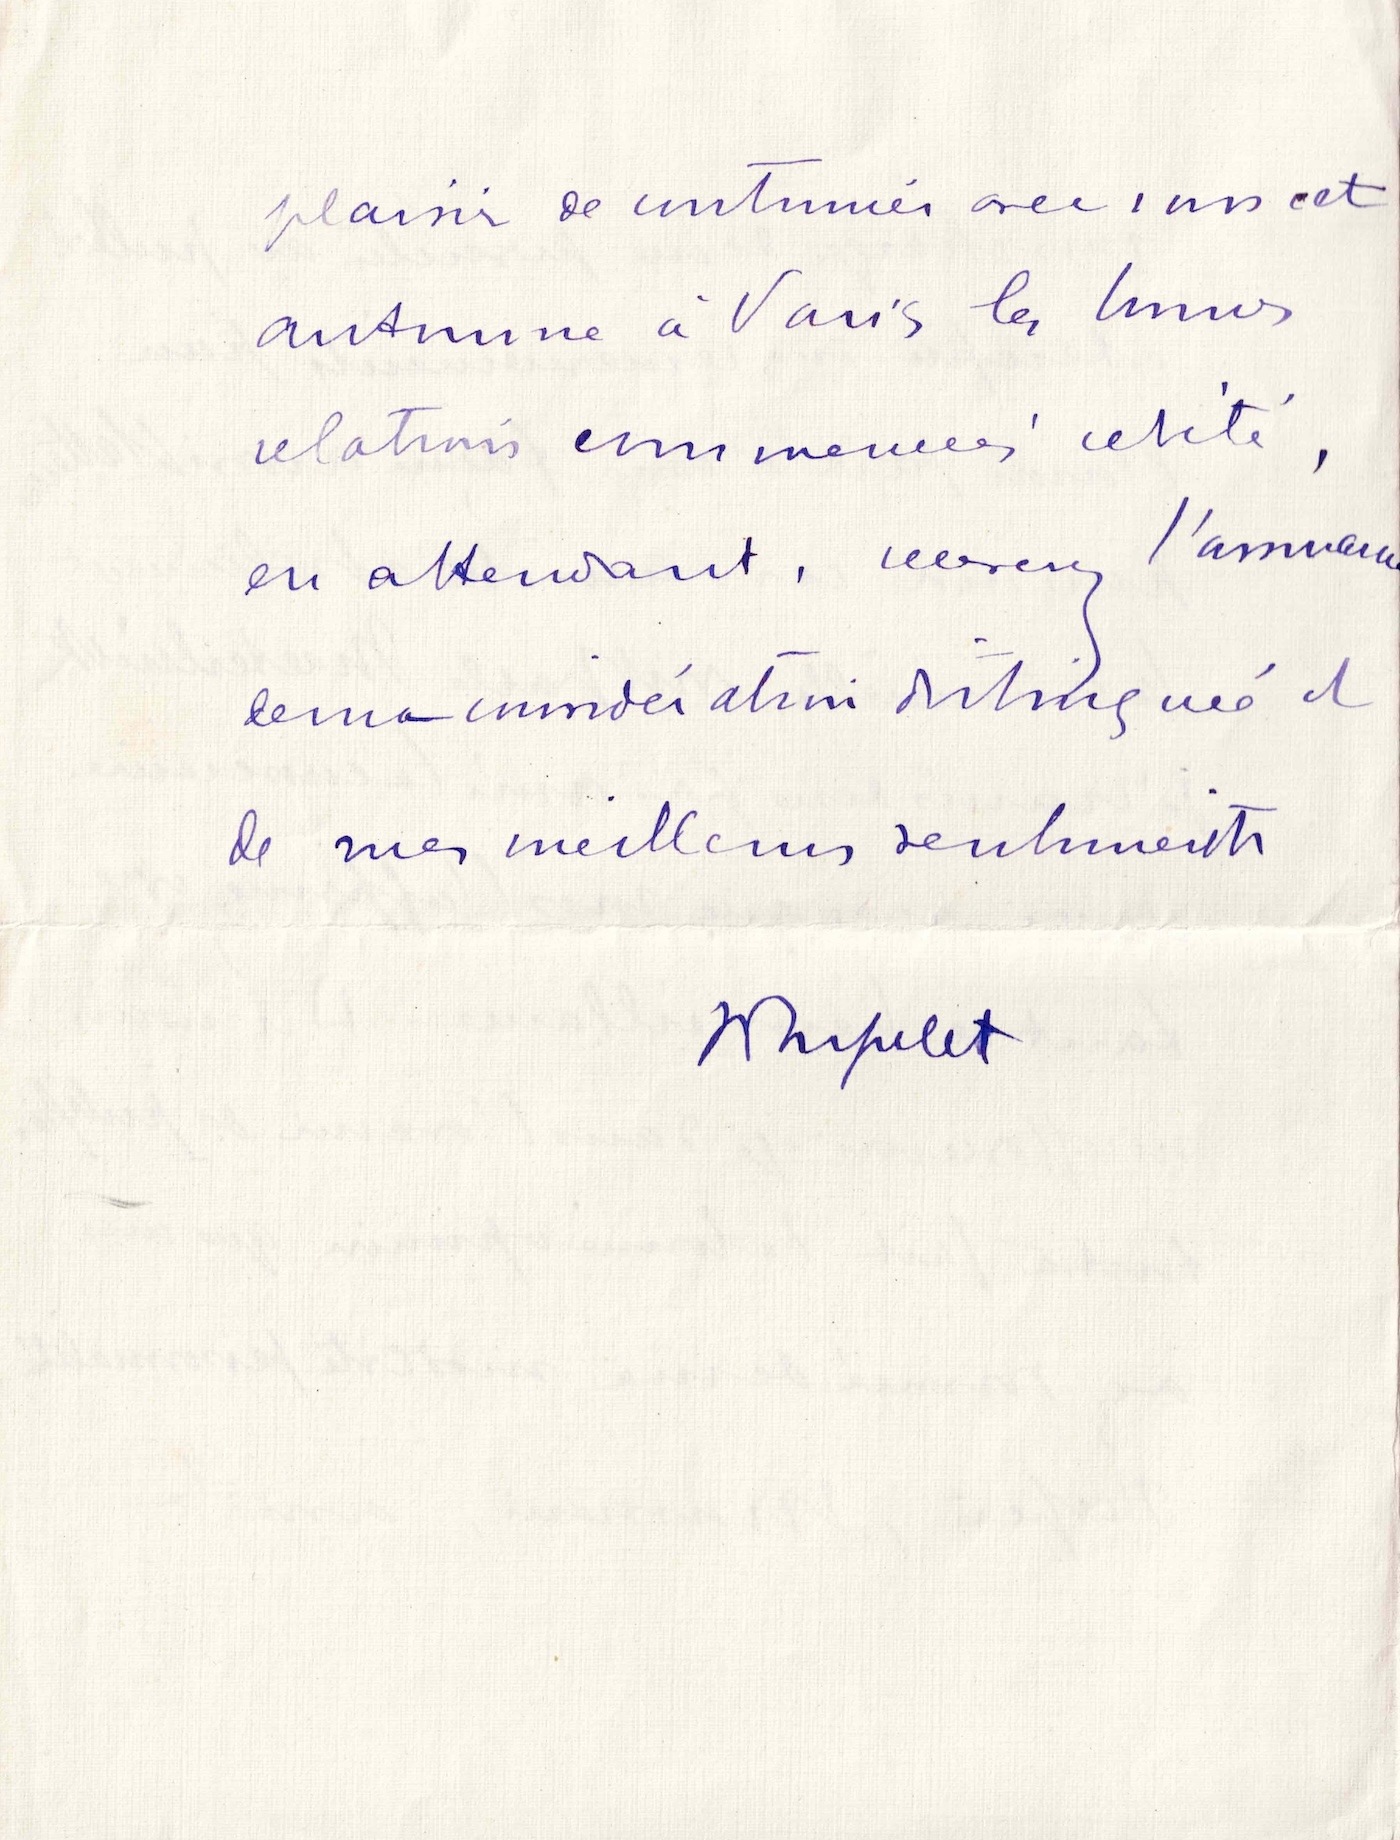 plaisir de continuer avec vous cet
automne à Paris les bonnes
relations commencées cet été,
en attendant, recevez l'assurance
de ma considération distinguée et
de mes meilleurs sentiments